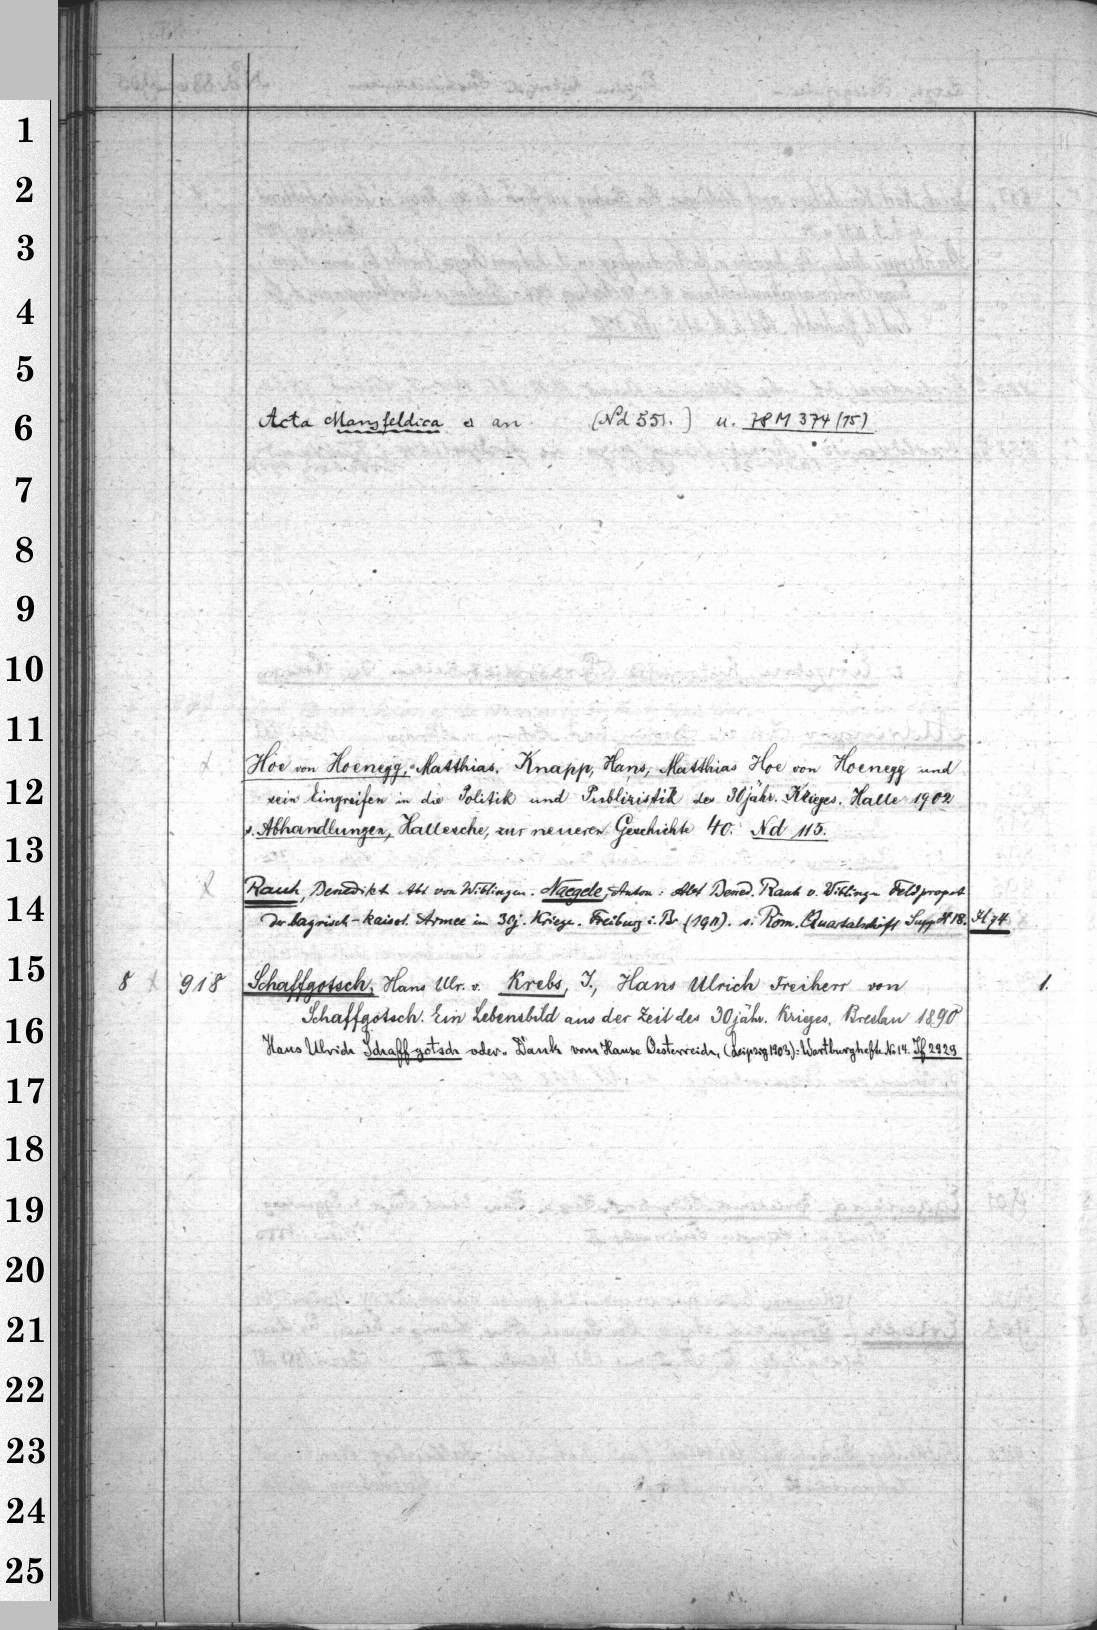 1
2
3
4
5
6
7
8
9
10
11
12
13
14
15
16
17
18
19
20
21
22
23
24
25
Acta Mansfeldica (Nd 551.) u. 78 M 374 (15)
Hoë von Hoenegg, Matthias. Knapp, Hans, Matthias Hoe von Hoenegg und
sein Eingreifen in die Politik und Publizistik des 30jähr. Krieges. Halle 1902
s. Abhandlungen, Hallesche, zur neueren Geschichte 40. Nd 115.
Rauh, Benedikt Abt von Wiblingen. Naegele, Anton: Abt Bened. Rauh v. Wiblingen Feldpropst
der bayrisch-kaiserl. Armee im 30j. Kriege. Freiburg i. Br (1911). s. Röm. Quartalschrift Supp H 18. Jl 74
8 x 918 Schaffgotsch, Hans Ulr. v. Krebs, J., Hans Ulrich Freiherr von 1.
Schaffgotsch. Ein Lebensbild aus der Zeit des 30jähr. Krieges. Breslau 1890
Hans Ulrich Schaffgotsch oder: Dank vom Hause Oesterreich, (Leipzig 1903): Wartburghefte No 14. If 2929